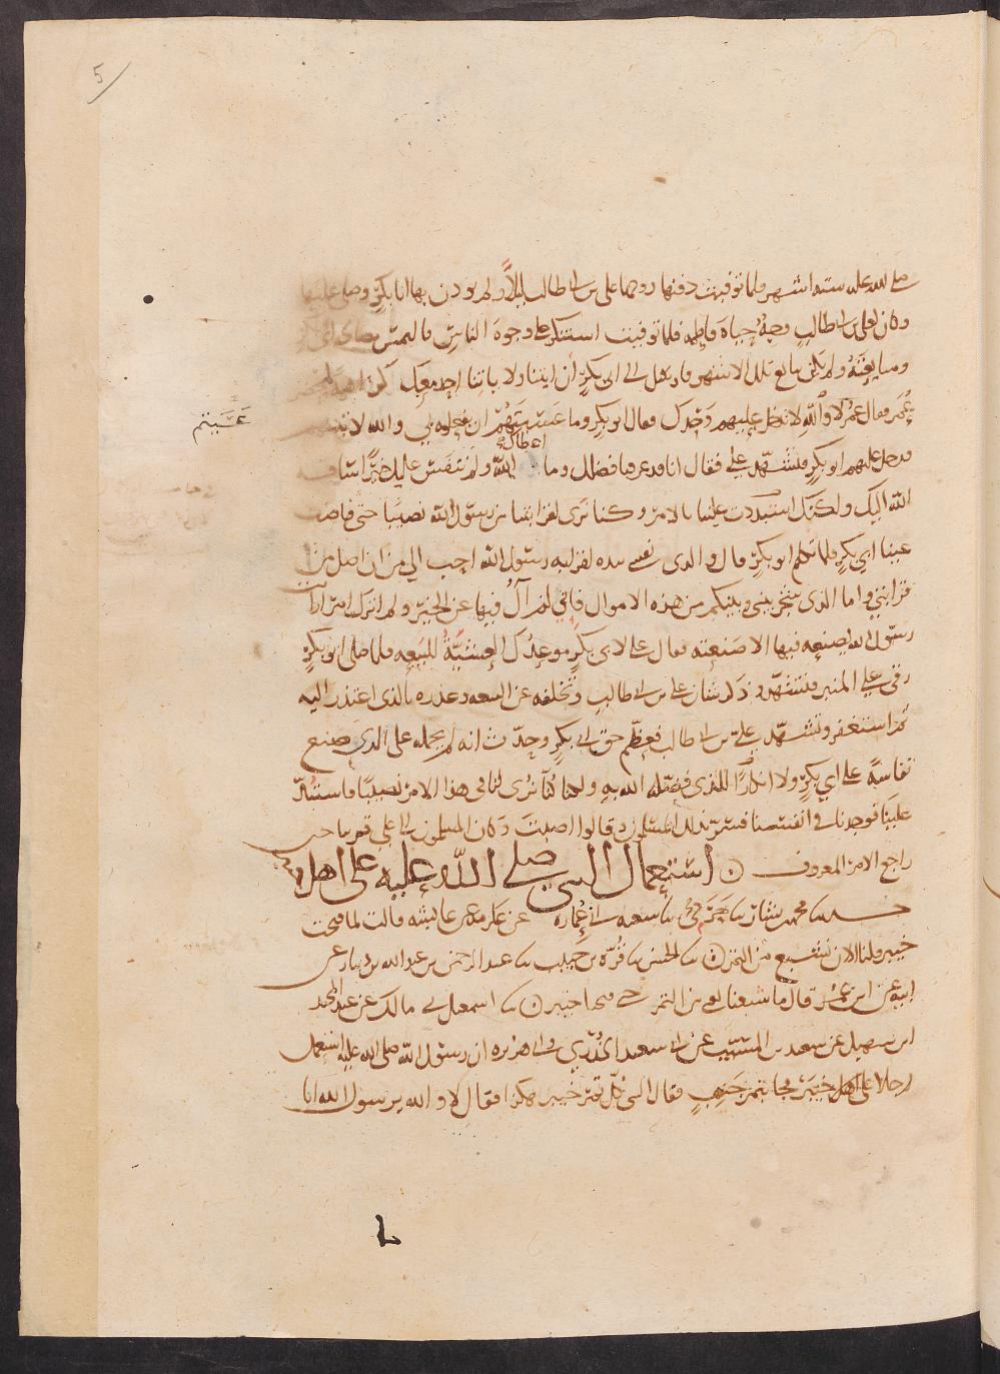 5
صلى الله عليه ستة اشهر فلما توفيت دفنها زوجها على بن ابى طالب ليلا ولم يوذن بها ابا بكر وصلى عليها
وكان لعلى بن ابى طالب وجه حياة فاطمه فلما توفيت استنكر على وجوه الناس فالتمس مصالحة ابى بكر
ومبايعته ولم يكن بايع تلك الاشهر فارسل الى ابى بكر ان ايتنا ولا ياتنا احد معك كراهية لمحضر
عمر فقال عمر لا والله لا تدخل عليهم وحدك فقال ابو بكر وما عسيتهم ان يفعلوه بى والله لاتينهم
عسيتم
فدخل عليهم ابو بكر فتشهد على فقال انا قد عرفنا فضلك وما اعطاك الله ولم ننفس عليك خيرا ساقه
الله اليك ولكنك استبددت علينا بالامر وكنا نرى لقرابتنا من رسول الله نصيبا حتى فاضت
عينا ابي بكر فلما تكلم ابو بكر قال والذى نفسى بيده لقرابة رسول الله احب الي من ان اصل من
قرابتي واما الذى شجر بيني وبينكم من هذه الاموال فاني لم آل فيها عن الخير ولم اترك امرا رايت
رسول الله يصنعه فيها الا صنعته فقال على لابى بكر موعدك العشية للبيعه فلما صلى ابو بكر
رقى على المنبر فتشهد وذكر شان على بن ابى طالب وتخلفه عن البيعه وعذره بالذى اعتذر اليه
ثم استغفر وتشهد على بن ابى طالب فعظم حق ابى بكر وحدث انه لم يحمله على الذى صنع
نفاسة على ابي بكر ولا انكارا للذى فضله الله به ولكنا كنا نرى لنا فى هذا الامر نصيبا فاستبد
علينا فوجدنا فى انفسنا فسر بذلك المسلمون وقالوا اصبت وكان المسلمون الى على قريبا حين
راجع الامر المعروف ن استعمال النبي صلى الله عليه على اهل خيبر
حدثنا محمد بن بشار نا حرمي نا شعبه نا عماره عن عكرمه عن عايشه قالت لما فتحت
خيبر قلنا الان نشبع من التمر ن نا الحسن نا قرة بن حبيب نا عبد الرحمن بن عبد الله بن دينار عن
ابيه عن ابن عمر قال ما شبعنا يعنى من التمر حتى فتحنا خيبر ن نا اسمعيل نى مالك عن عبد المجيد
ابن سهيل عن سعيد بن المسيب عن ابى سعيد الخدري وابى هريره ان رسول الله صلى الله عليه استعمل
رجلا على اهل خيبر فجا بتمر جنيب فقال النبى كل تمر خيبر هكذا فقال لا والله يرسول الله انا